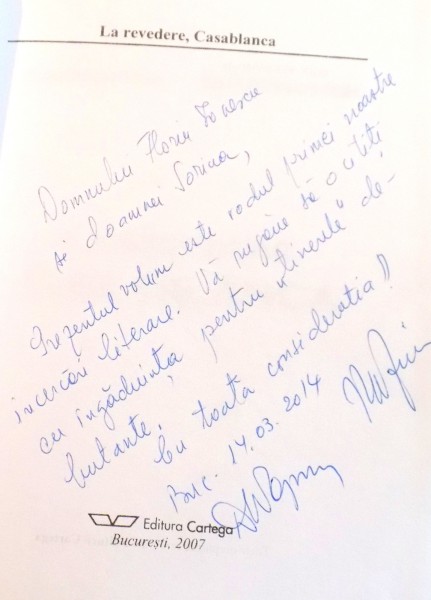 La revedere, Casablanca
Domnului Florin Ionescu
și doamnei Sorina,
Prezentul volum este rodul primei noastre
încercări literare. Vă rugăm să o citiți
cu îngăduința pentru "tinerele de-
butante".
Cu toată considerația!
Buc. 14.03.2014
Editura Cartega
București, 2007